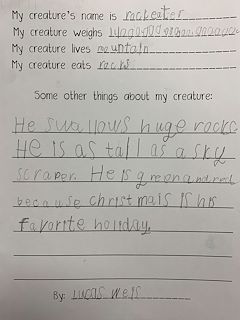 My creature's name is rockeater
My creature weighs
My creature lives mountain
My creature eats rocks
Some other things about my creature:
He swallows huge rocks
He is as tall as a sky
scraper. He is green and red
because christmais is his
favorite holiday.
By: Lucas Weis